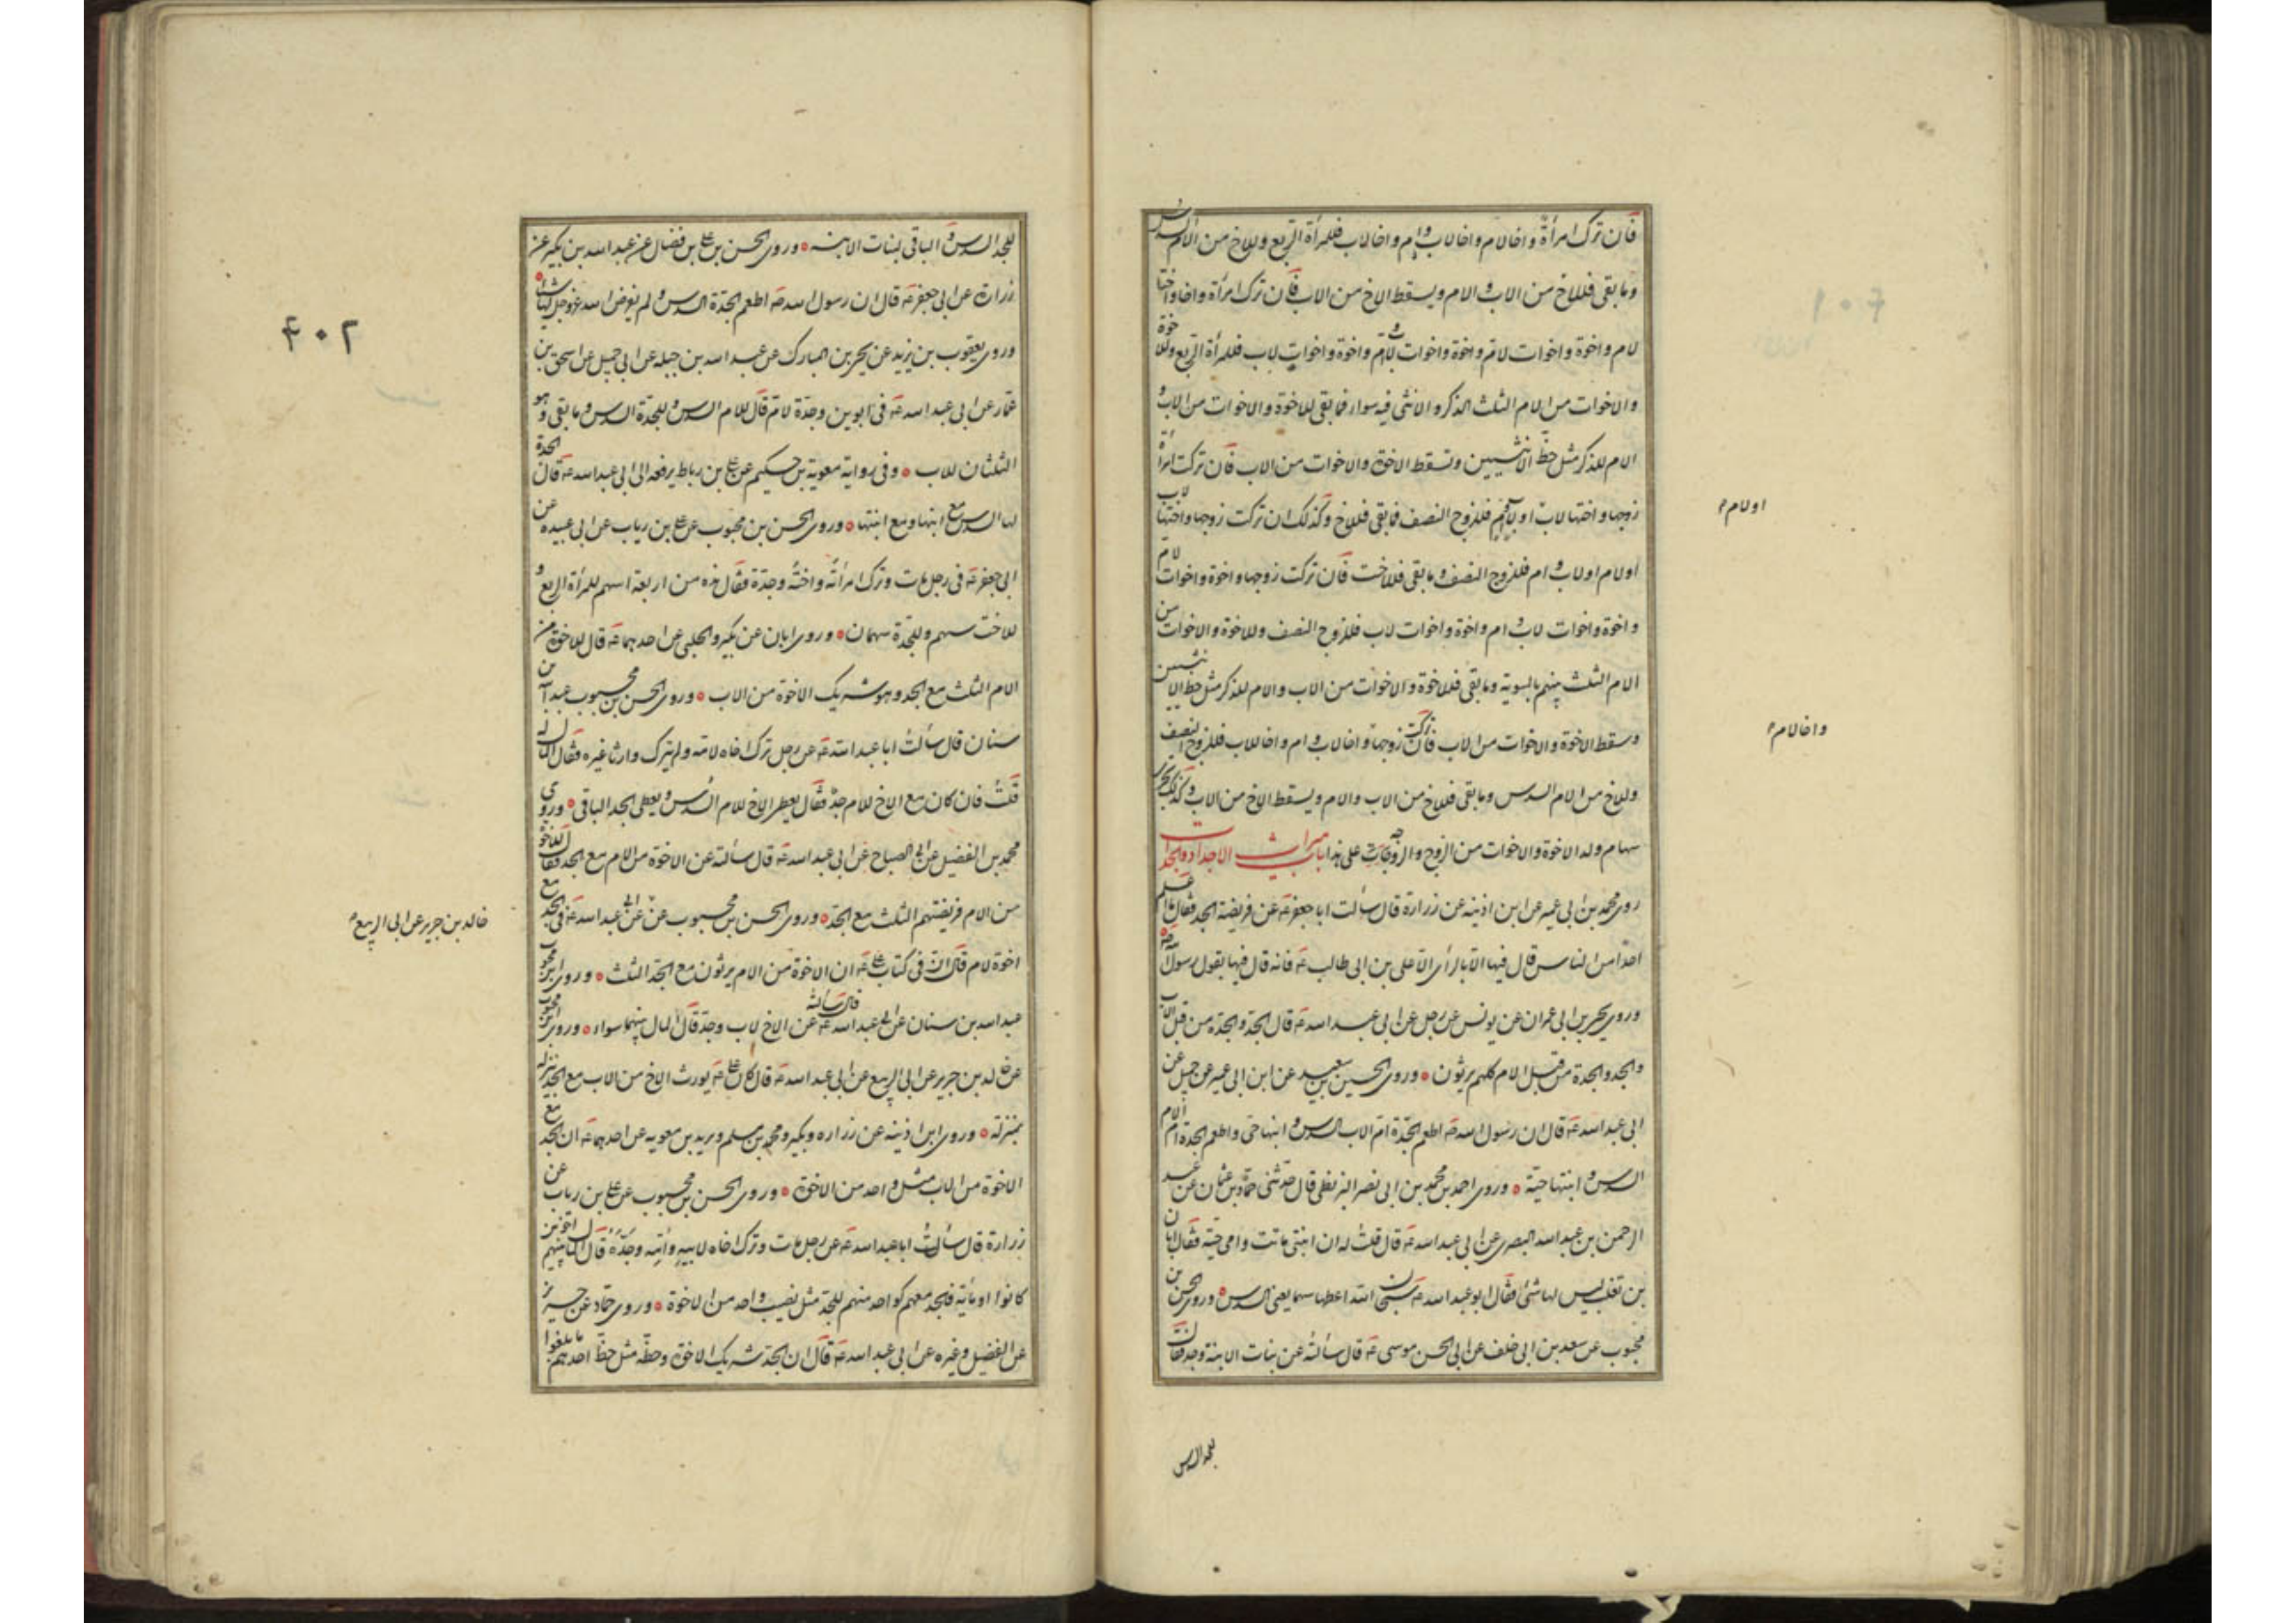 فان ترك امرأة واخا لام واخا لاب وام واخا لاب فللمرأة الربع وللاخ من الام السدس
وما بقى فللاخ من الاب والام ويسقط الاخ من الاب فان ترك امرأة واخا واختا
لام واخوة واخوات لام واخوة واخوات لاب وام واخوة واخوات لاب فللمرأة الربع وللاخوة
والاخوات من الام الثلث الذكر والانثى فيه سواء فما بقى للاخوة والاخوات من الاب و
الام للذكر مثل حظ الانثيين وتسقط الاخوة والاخوات من الاب فان تركت امرأة
زوجها واختها لاب او فللزوج النصف فما بقى فللاخ وكذلك ان تركت زوجها واختها لاب
او لام او لاب وام فللزوج النصف وما بقى فللاخت فان تركت زوجها واخوة واخوات لام
واخوة واخوات لاب وام واخوة واخوات لاب فللزوج النصف وللاخوة والاخوات من
الام الثلث بينهم بالسوية وما بقى فللاخوة والاخوات من الاب والام للذكر مثل حظ الانثيين
وسقط الاخوة والاخوات من الاب فان تركت زوجها واخا لاب وام واخا للاب فللزوج النصف
وللاخ من الام السدس وما بقى فللاخ من الاب والام ويسقط الاخ من الاب وكذلك تجرى
سهام ولد الاخوة والاخوات من الزوج والزوجات على هذا باب ميراث الاجداد والجدات
روى محمد بن ابى عمير عن ابن اذينه عن زرارة قال سألت ابا جعفر عه عن فريضة الجد فقال ما اعلم
احدا من الناس قال فيها الا بالرأى الا على بن ابى طالب عه فانه قال فيها بقول رسول الله صه
وروى يحيى بن ابى عمران عن يونس عن رجل عن ابى عبد الله عه قال الجد والجدة من قبل الاب
والجد والجدة من قبل الام كلهم يرثون وروى الحسين بن سعيد عن ابن ابى عمير عن جميل عن
ابى عبد الله عه قال ان رسول الله صه اطعم الجدة ام الاب السدس وابنها حى واطعم الجدة ام الام
السدس وابنتها حية وروى احمد بن محمد بن ابى نصر البزنطى قال حدثنى حماد بن عثمان عن عبد
الرحمن بن عبد الله البصرى عن ابى عبد الله عه قال قلت له ان ابنتى ماتت وامى حية فقال ابان
بن تغلب ليس لها شئ فقال ابو عبد الله عه سبحان الله اعطها سهما يعنى السدس وروى الحسن بن
محبوب عن سعد بن ابى خلف عن ابى الحسن موسى عه قال سألته عن بنات الابنة وجد فقال
او لام
واخا لام
للجد السدس
للجد السدس والباقى لبنات الابنة وروى الحسن بن على بن فضال عن عبد الله بن بكير عن
زرارة عن ابى جعفر عه قال ان رسول الله صه اطعم الجدة السدس ولم يفرض الله عز وجل لها شيئا
وروى يعقوب بن يزيد عن يحيى بن المبارك عن عبد الله بن جبله عن ابى جميل عن اسحق بن
عمار عن ابى عبد الله عه فى ابوين وجدة لام قال للام السدس وللجدة السدس وما بقى وهو
الثلثان للاب وفى رواية معوية بن حكيم عن على بن رباط يرفعه الى ابى عبد الله عه قال الجدة
لها السدس مع ابنها ومع ابنتها وروى الحسن بن محبوب عن على بن رياب عن ابى عبيده عن
ابى جعفر عه فى رجل مات وترك امرأته واخته وجدة فقال هذه من اربعة اسهم للمرأة الربع و
للاخت سهم وللجدة سهمان وروى ابان عن بكير والحلبى عن احدهما عه قال للاخوة من
الام الثلث مع الجد وهو شريك الاخوة من الاب وروى الحسن بن محبوب عن عبد الله بن
سنان قال سألت ابا عبد الله عه عن رجل ترك اخاه لامه ولم يترك وارثا غيره فقال المال له
قلت فان كان مع الاخ للام جد فقال يعطى الاخ للام السدس ويعطى الجد الباقى وروى
محمد بن الفضيل عن ابى الصباح عن ابى عبد الله عه قال سألته عن الاخوة من الام مع الجد فقال للاخوة
من الام فريضتهم الثلث مع الجد وروى الحسن بن محبوب عن عن ابى عبد الله عه فى الجد مع
اخوة لام قال ان فى كتاب على عه ان الاخوة من الام يرثون مع الجد الثلث وروى ابن محبوب
عبد الله بن سنان عن ابى عبد الله عه قال سألته عن الاخ لاب وجد قال المال بينهما سواء وروى ابن محبوب
عن خالد بن جرير عن ابى الربيع عن ابى عبد الله عه قال كان على عه يورث الاخ من الاب مع الجد ينزله
بمنزلته وروى ابن اذينه عن زراره وبكير ومحمد بن مسلم وبريد بن معويه عن احدهما عه ان الجد مع
الاخوة من الاب مثل واحد من الاخوة وروى الحسن بن محبوب عن على بن رياب عن
زرارة قال سألت ابا عبد الله عه عن رجل مات وترك اخاه لابيه وامه وجده قال المال بينهم اخوين
كانوا او مائة فللجد معهم كواحد منهم للجد مثل نصيب واحد من الاخوة وروى حماد عن حريز
عن الفضيل وغيره عن ابى عبد الله عه قال ان الجد شريك الاخوة وحظه مثل حظ احدهم ما بلغوا
خالد بن جرير عن ابى الربيع
۴۰۲